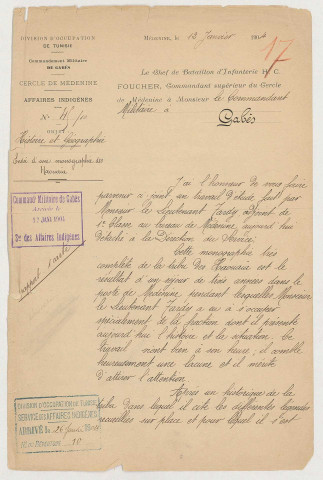 DIVISION D'OCCUPATION
DE TUNISIE
Commandement Militaire
DE GABÈS
CERCLE DE MÉDENINE
AFFAIRES INDIGÈNES
N°
OBJET
Histoire et Géographie
Envoi d'une monographie des
Haouaïa
MÉDENINE, le 13 Janvier
17
Le Chef de Bataillon d'Infanterie H. C.
FOUCHER, Commandant supérieur du Cercle
de Médenine à Monsieur le Commandant
Militaire à
Gabès
J'ai l'honneur de vous faire
parvenir ci-joint un travail d'étude fait par
Monsieur le Lieutenant Tardy adjoint de
1re classe au bureau de Médenine, aujourd'hui
détaché à la Direction du Service.
Cette monographie très
complète de la tribu des Haouaïa est le
résultat d'un séjour de trois années dans le
poste de Médenine pendant lesquelles Monsieur
le Lieutenant Tardy a eu à s'occuper
spécialement de la fraction dont il présente
aujourd'hui l'histoire et la situation. Ce
travail vient bien à son heure, il comble
heureusement une lacune et il mérite
d'attirer l'attention.
Après un historique de la
tribu dans lequel il cite les différentes légendes
recueillies sur place et pour lequel il s'est
Command^t Militaire de Gabès
Arrivée le
JAN. 1904
des Affaires Indigènes
DIVISION D'OCCUPATION DE TUNISIE
SERVICE DES AFFAIRES INDIGÈNES
ARRIVÉ le 26 Janvier